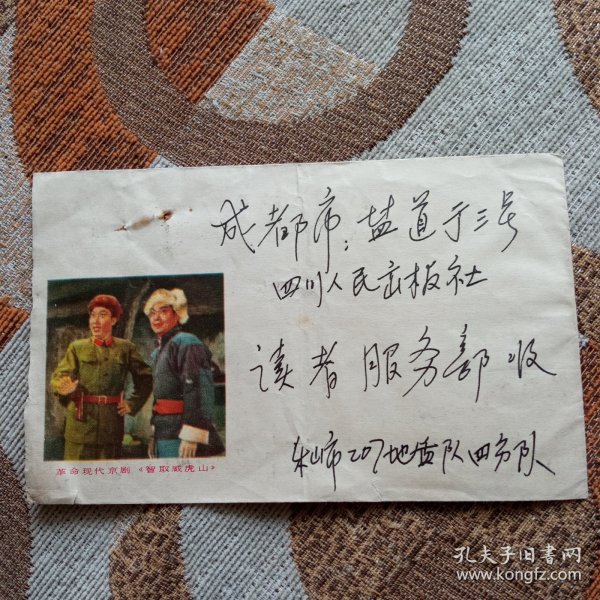 成都市：盐道于三号
四川人民出板社
读者服务部收
乐山市207地质队四分队
革命现代京剧《智取威虎山》
孔夫子旧书网
www.kongfz.com